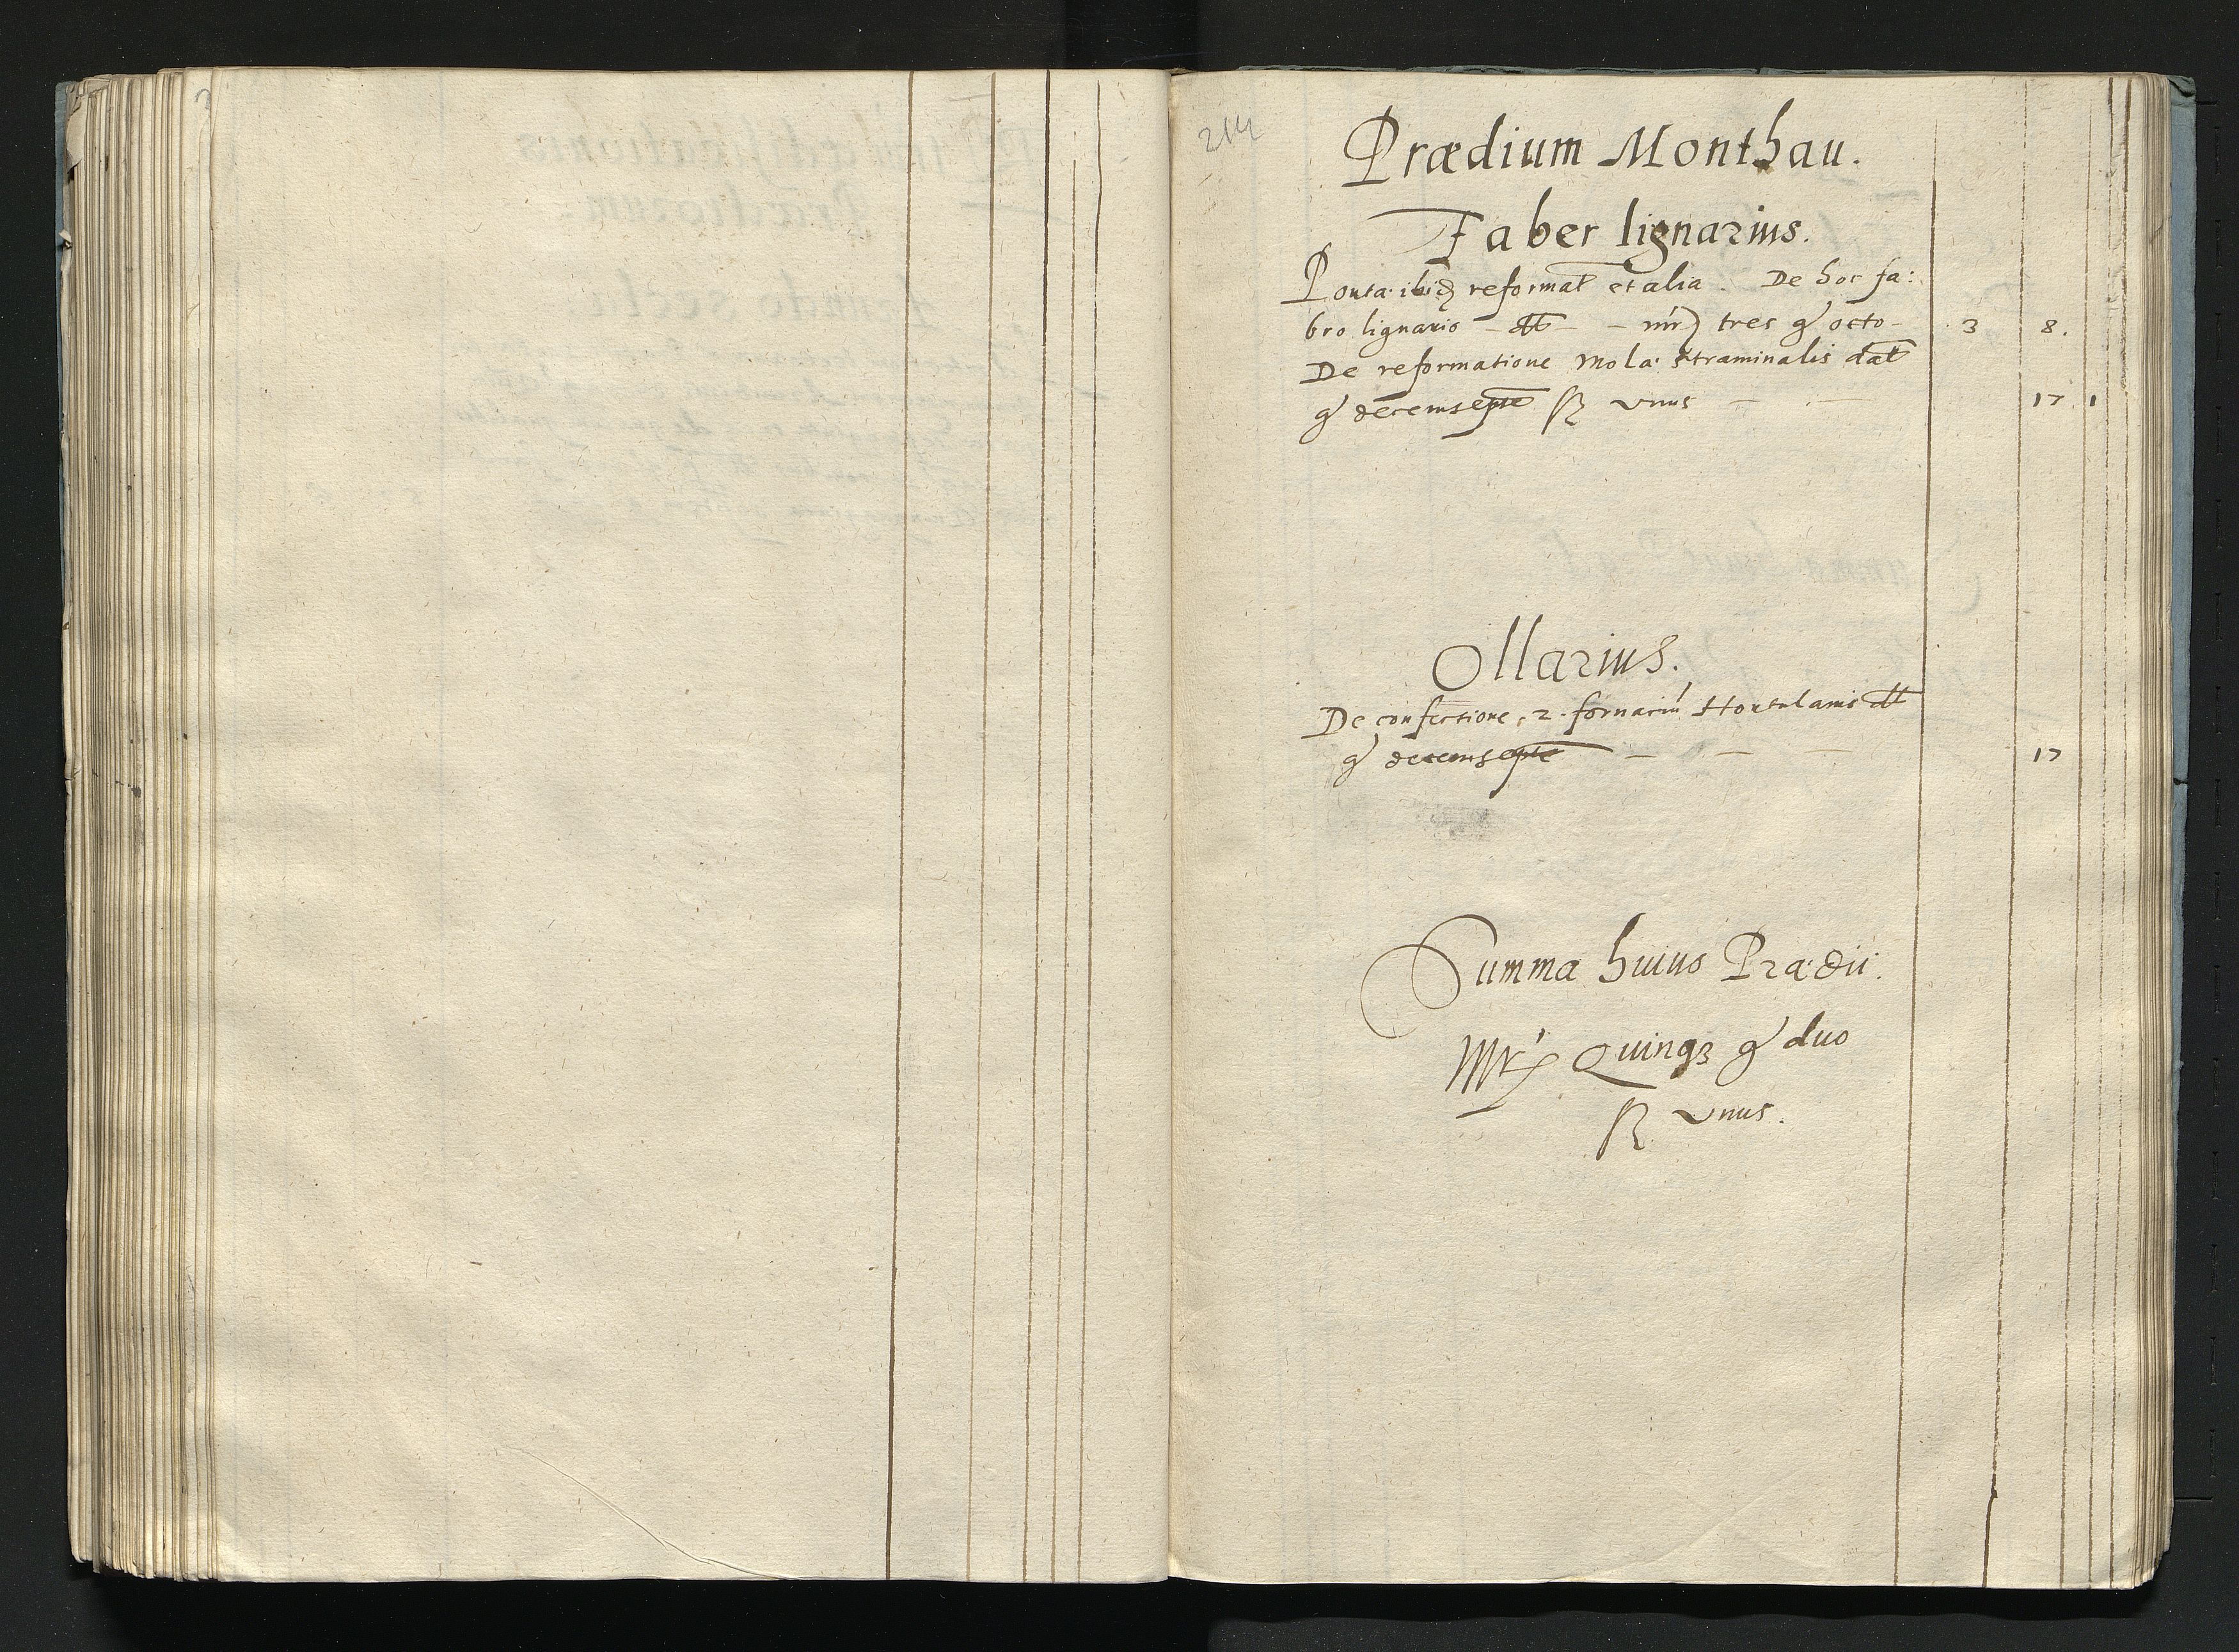 214
Prædium Monthau.
Faber lignarius.
Porta ibidē reformat et alia. De hoc fa:
bro lignario dt mr) tres g octo 3 8.
De reformatione Mola straminalis dat
g decemsepte ß vnus 17 1
Ollarius.
De confectione 2. fornaciu Hortulanis dt
g decemsepte 17
Summa huius Prædii.
Mr Quinq3 g duo
ß vnus.